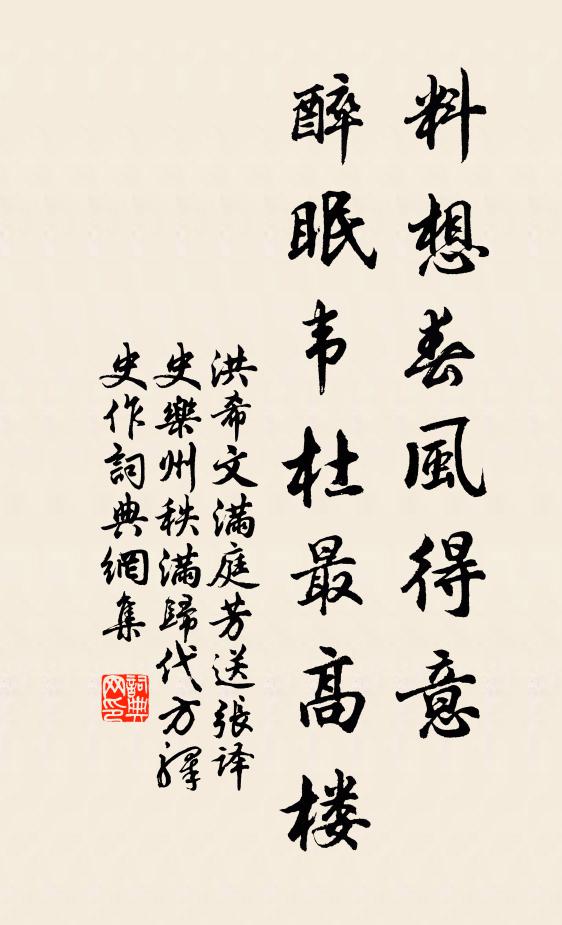 料想春風得意
醉眠韦杜最高楼
洪希文满庭芳送張译
史樂州秩满歸代方譯
史作詞典網集
詞典网印